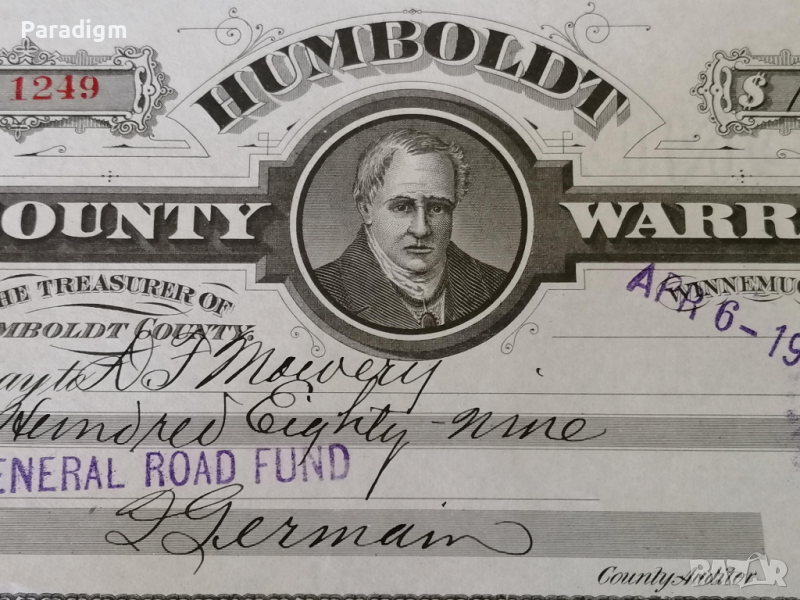 Paradigm
HUMBOLDT
1249
$
OUNTY WARR
HE TREASURER OF
MBOLDT COUNTY.
WINNEMUC
APR 6-19
ay to D F Mowery
Hundred Eighty-nine
ENERAL ROAD FUND
Germain
County Auditor
BAZAR